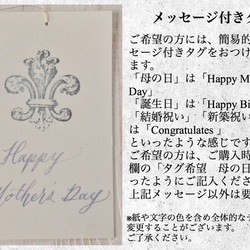 Happy
Mothers Day
メッセージ付きタ
ご希望の方には、簡易的
セージ付きタグをおつけ
ます。
「母の日」は「Happy M
Day」
「誕生日」は「Happy Bi
「結婚祝い」「新築祝い
は「Congratulates 」
といったような感じです
ご希望の方は、ご購入時
欄の「タグ希望　母の日
ったようにご記入くださ
上記メッセージ以外は要
※紙や文字の色を含め全体的な
変更することがございます。
ご了承ください。